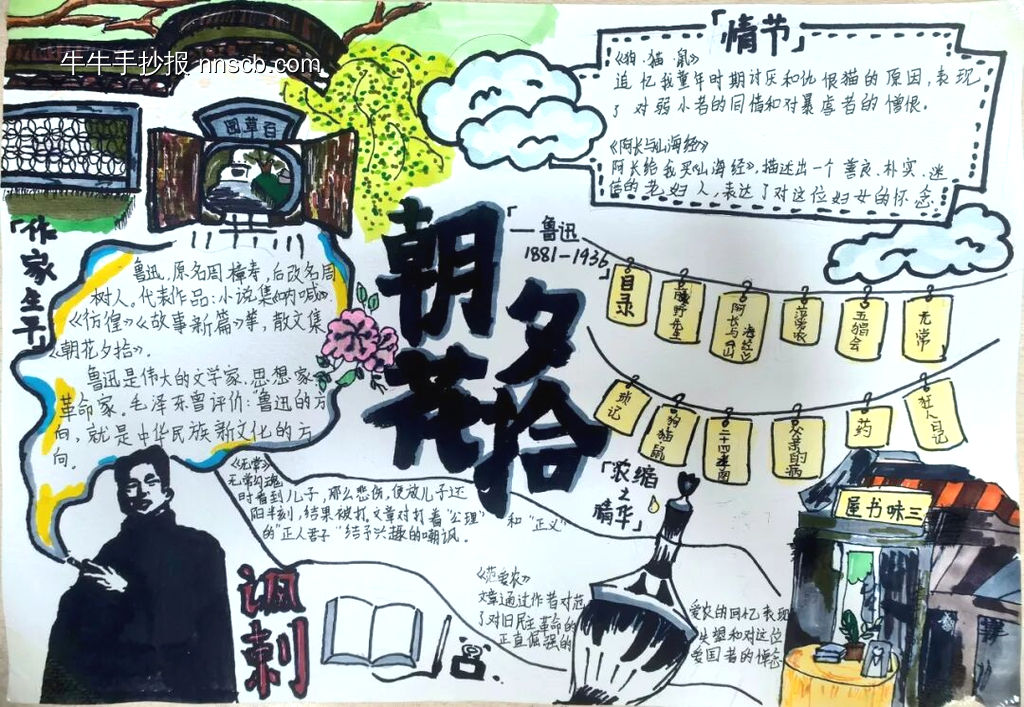 牛牛手抄报 nnscb.com
百草园
「情节」
《狗·猫·鼠》
追忆我童年时期讨厌和仇恨猫的原因,表现
了对弱小者的同情和对暴虐者的憎恨。
《阿长与山海经》
阿长给我买《山海经》,描述出一个善良、朴实、迷
信的老妇人,表达了对这位妇女的怀念.
「作家生平」
鲁迅,原名周樟寿,后改名周
树人。代表作品:小说集《呐喊》
《彷徨》《故事新篇》等,散文集
《朝花夕拾》.
鲁迅是伟大的文学家、思想家
革命家.毛泽东曾评价:"鲁迅的方
向,就是中华民族新文化的方
向.
「朝花夕拾
—鲁迅
1881-1936」
目录
藤野先生
阿长与《山海经》
范爱农
五猖会
无常
琐记
狗·猫·鼠
二十四孝图
父亲的病
药
狂人日记
「浓缩之精华」
《无常》
无常勾魂
时看到儿子,那么悲伤,便放儿子还
阳半刻,结果被打.文章对打着"公理"和"正义"
的"正人君子"结予兴趣的嘲讽.
讽刺
《范爱农》
文章通过作者对范爱农的回忆表现
了对旧民主革命的失望和对这位
正直倔强的爱国者的悼念
三味书屋